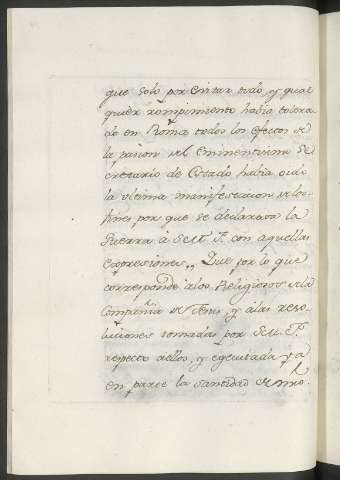 que solo por evitar todo, y qual
quier rompimiento havia tolera-
do en Roma todos los efectos de
la pasion del Eminentisimo Se
cretario de Estado havia oido
la ultima manifestacion de los
fines por que se declarava la
Guerra à S.M.F. con aquellas
expresiones,, Que por lo que
corresponde a los Religiosos de la
Compañia de Jesus, y à las reso-
luciones tomadas por S.M.F.
respecto a ellos, y egecutada ya
en parte la Santidad de nro.